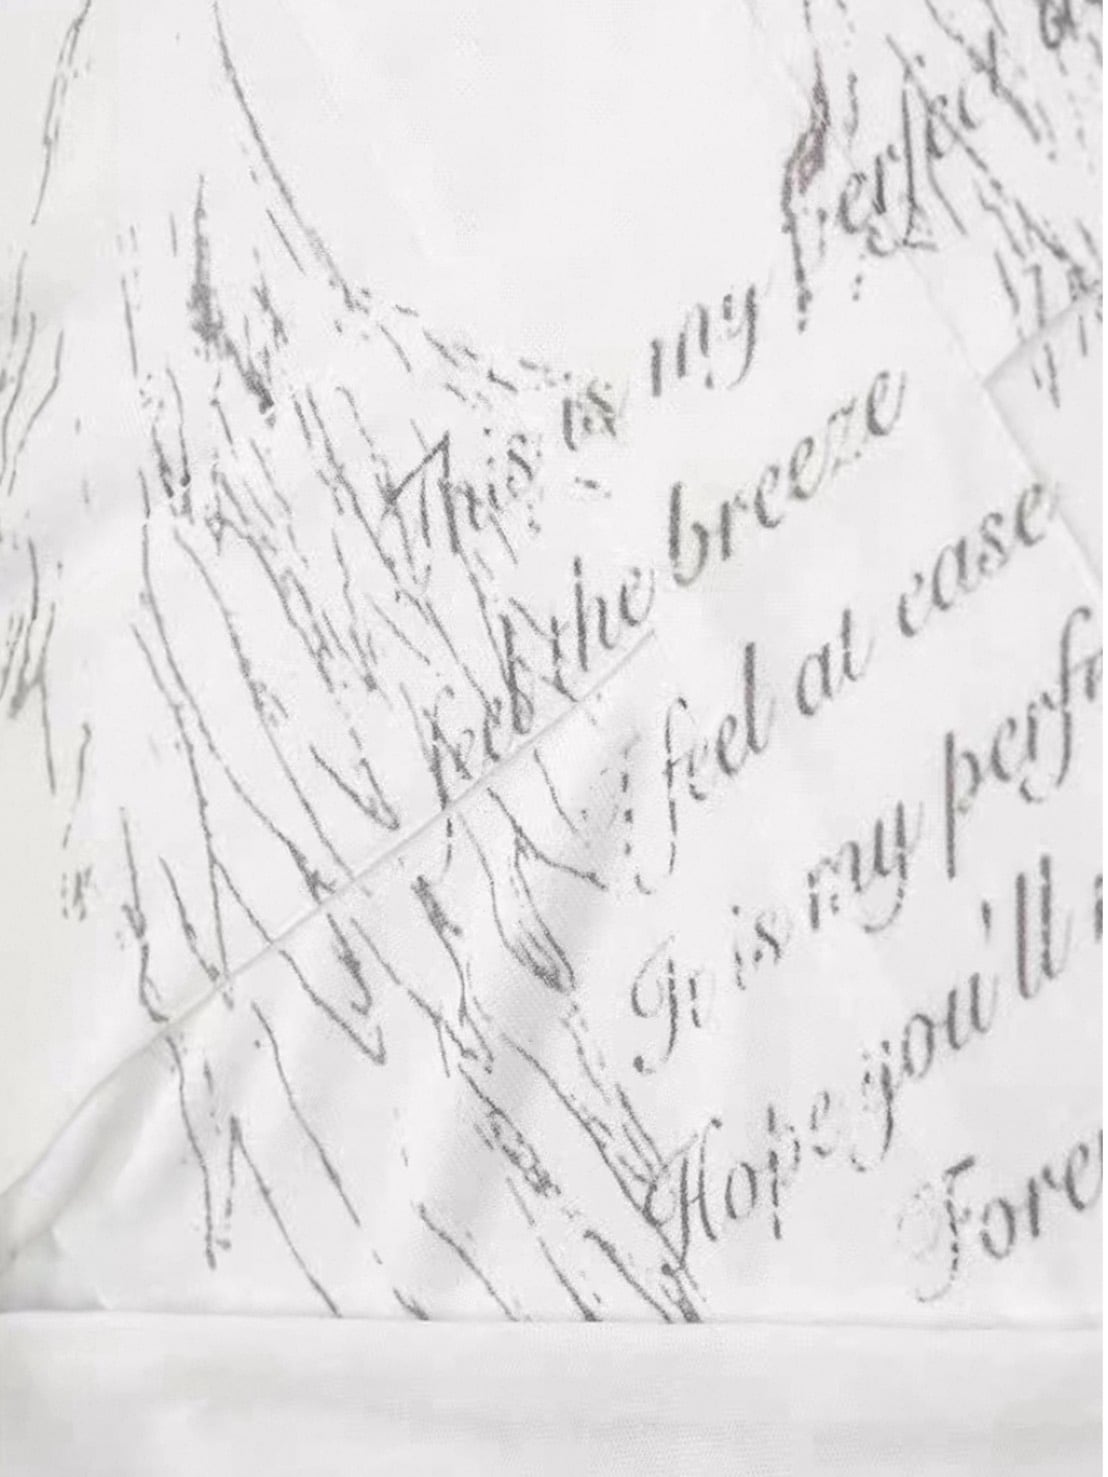 This is my perfect
feel the breeze
I feel at ease
It is my perf
Hope you'll
Fore